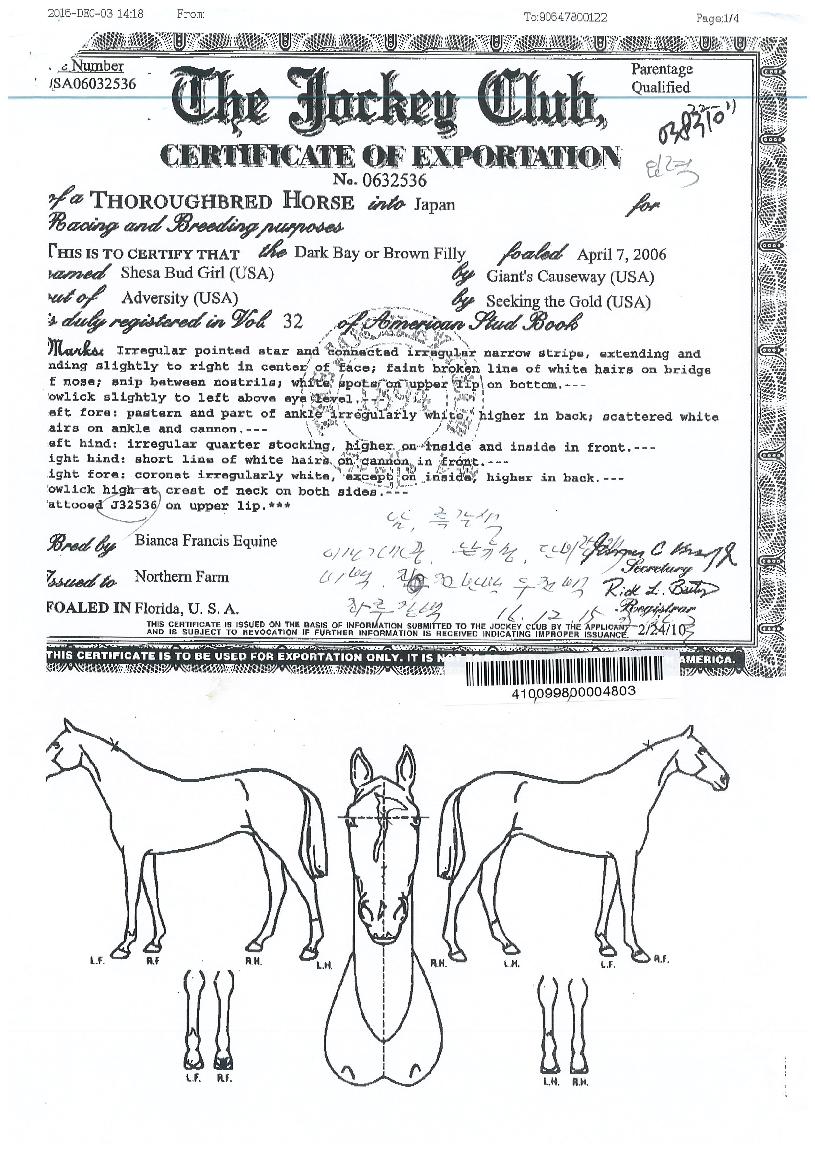 2016-DEC-03 14:18 From: To:90647800122 Page:1/4
Number
SA06032536
Parentage
Qualified
The Jockey Club,
CERTIFICATE OF EXPORTATION
No. 0632536
of a THOROUGHBRED HORSE into Japan for
Racing and Breeding purposes
THIS IS TO CERTIFY THAT the Dark Bay or Brown Filly foaled April 7, 2006
named Shesa Bud Girl (USA) by Giant's Causeway (USA)
out of Adversity (USA) by Seeking the Gold (USA)
is duly registered in Vol. 32 of American Stud Book
Marks: Irregular pointed star and connected irregular narrow stripe, extending and
nding slightly to right in center of face; faint broken line of white hairs on bridge
f nose; snip between nostrils; white spots on upper lip on bottom.---
owlick slightly to left above eye level.---
eft fore: pastern and part of ankle irregularly white, higher in back; scattered white
airs on ankle and cannon.---
eft hind: irregular quarter stocking, higher on inside and inside in front.---
ight hind: short line of white hairs on cannon in front.---
ight fore: coronet irregularly white, except on inside, higher in back.---
owlick high at crest of neck on both sides.---
attooed J32536 on upper lip.***
Bred by Bianca Francis Equine
Secretary
Issued to Northern Farm
Registrar
FOALED IN Florida, U. S. A.
16. 12. 15
THIS CERTIFICATE IS ISSUED ON THE BASIS OF INFORMATION SUBMITTED TO THE JOCKEY CLUB BY THE APPLICANT
AND IS SUBJECT TO REVOCATION IF FURTHER INFORMATION IS RECEIVED INDICATING IMPROPER ISSUANCE. 2/24/10
THIS CERTIFICATE IS TO BE USED FOR EXPORTATION ONLY. IT IS NOT AMERICA.
410099800004803
L.F. R.F. R.H. L.H. R.H. L.H. L.F. R.F.
L.F. R.F. L.H. R.H.